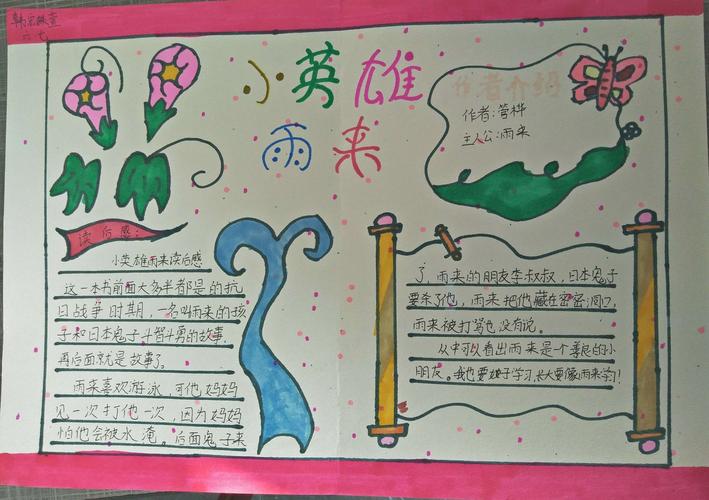 六、七
小英雄
雨来
作者介绍
作者:管桦
主人公:雨来
读后感:
小英雄雨来读后感
这一本书前面大多半都是的抗
日战争时期,一名叫雨来的孩
子和日本鬼子斗智斗勇的故事,
再后面就是故事了。
雨来喜欢游泳,可他妈妈
见一次打他一次,因为妈妈
怕他会被水淹。后面鬼子来
了,雨来的朋友李叔叔,日本鬼子
要杀了他,雨来把他藏在密密洞口,
雨来被打骂也没有说。
从中可以看出雨来是一个善良的小
朋友。我也要好子学习,长大要像雨来学习!